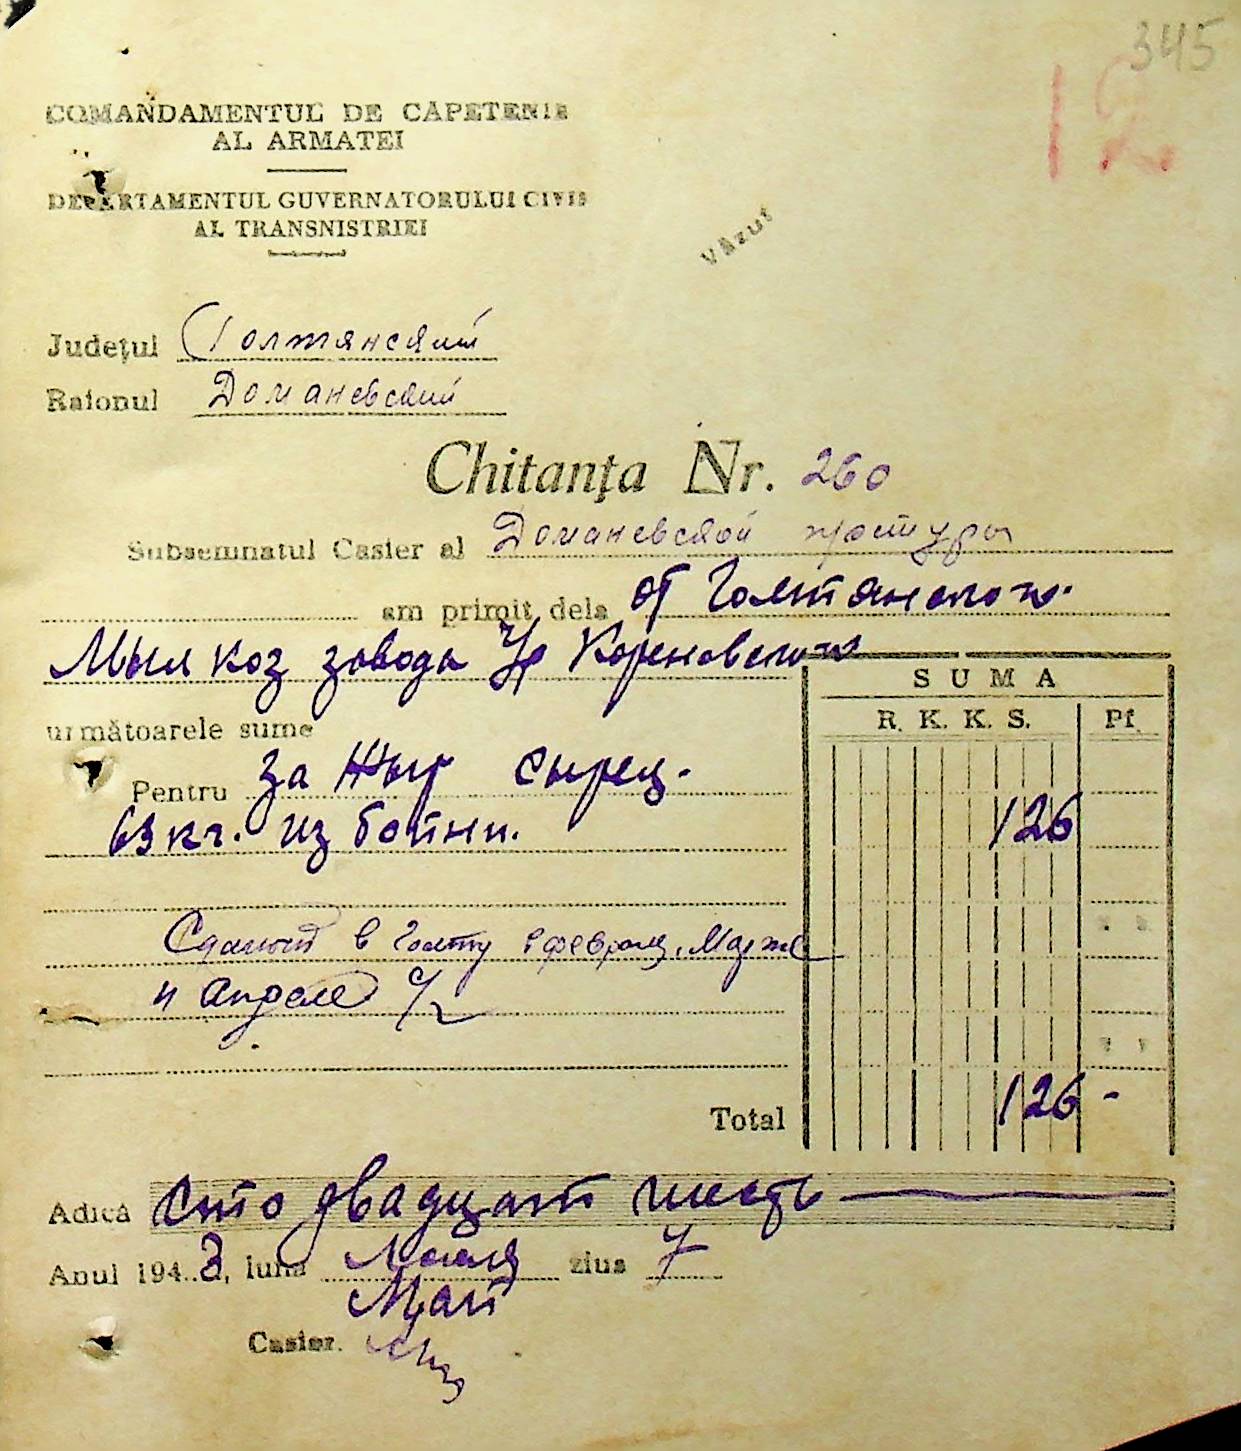 345
12
COMANDAMENTUL DE CAPETENIE
AL ARMATEI
DEPARTAMENTUL GUVERNATORULUI CIVIL
AL TRANSNISTRIEI
Văzut
Județul Голтянский
Raionul Доманевский
Chitanța Nr. 260
Subsemnatul Casier al Доманевской претуры
am primit dela от Голтянского
Мыл коз завода Кореновского
SUMA
R. K. K. S. Pf.
următoarele sume
Pentru за жыр сырец.
63 кг. из бойни. 126
в Голту в феврале, Марте
и Апреле
Total 126 -
Adică сто двадцат шесть
Anul 194..3, luna Мая ziua 7
Май
Casier.